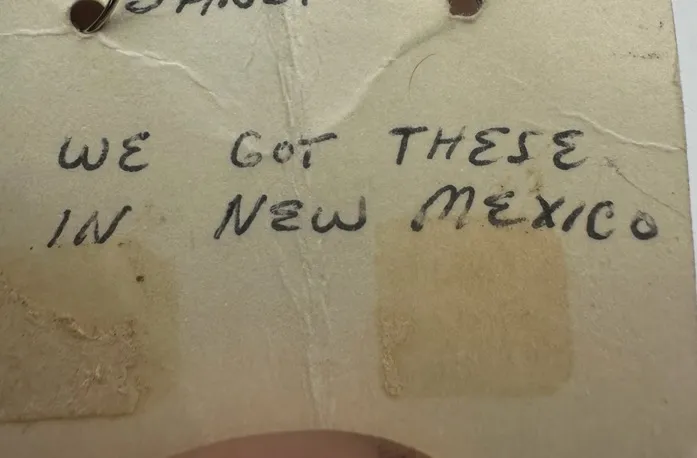 WE GOT THESE
IN NEW MEXICO